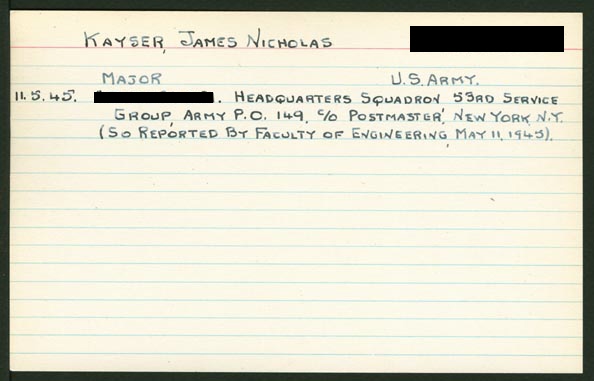 KAYSER, JAMES NICHOLAS
MAJOR U.S. ARMY.
11.5.45. . HEADQUARTERS SQUADRON 53RD SERVICE
GROUP, ARMY P.O. 149, C/O POSTMASTER, NEW YORK, N.Y.
(SO REPORTED BY FACULTY OF ENGINEERING, MAY 11, 1945).